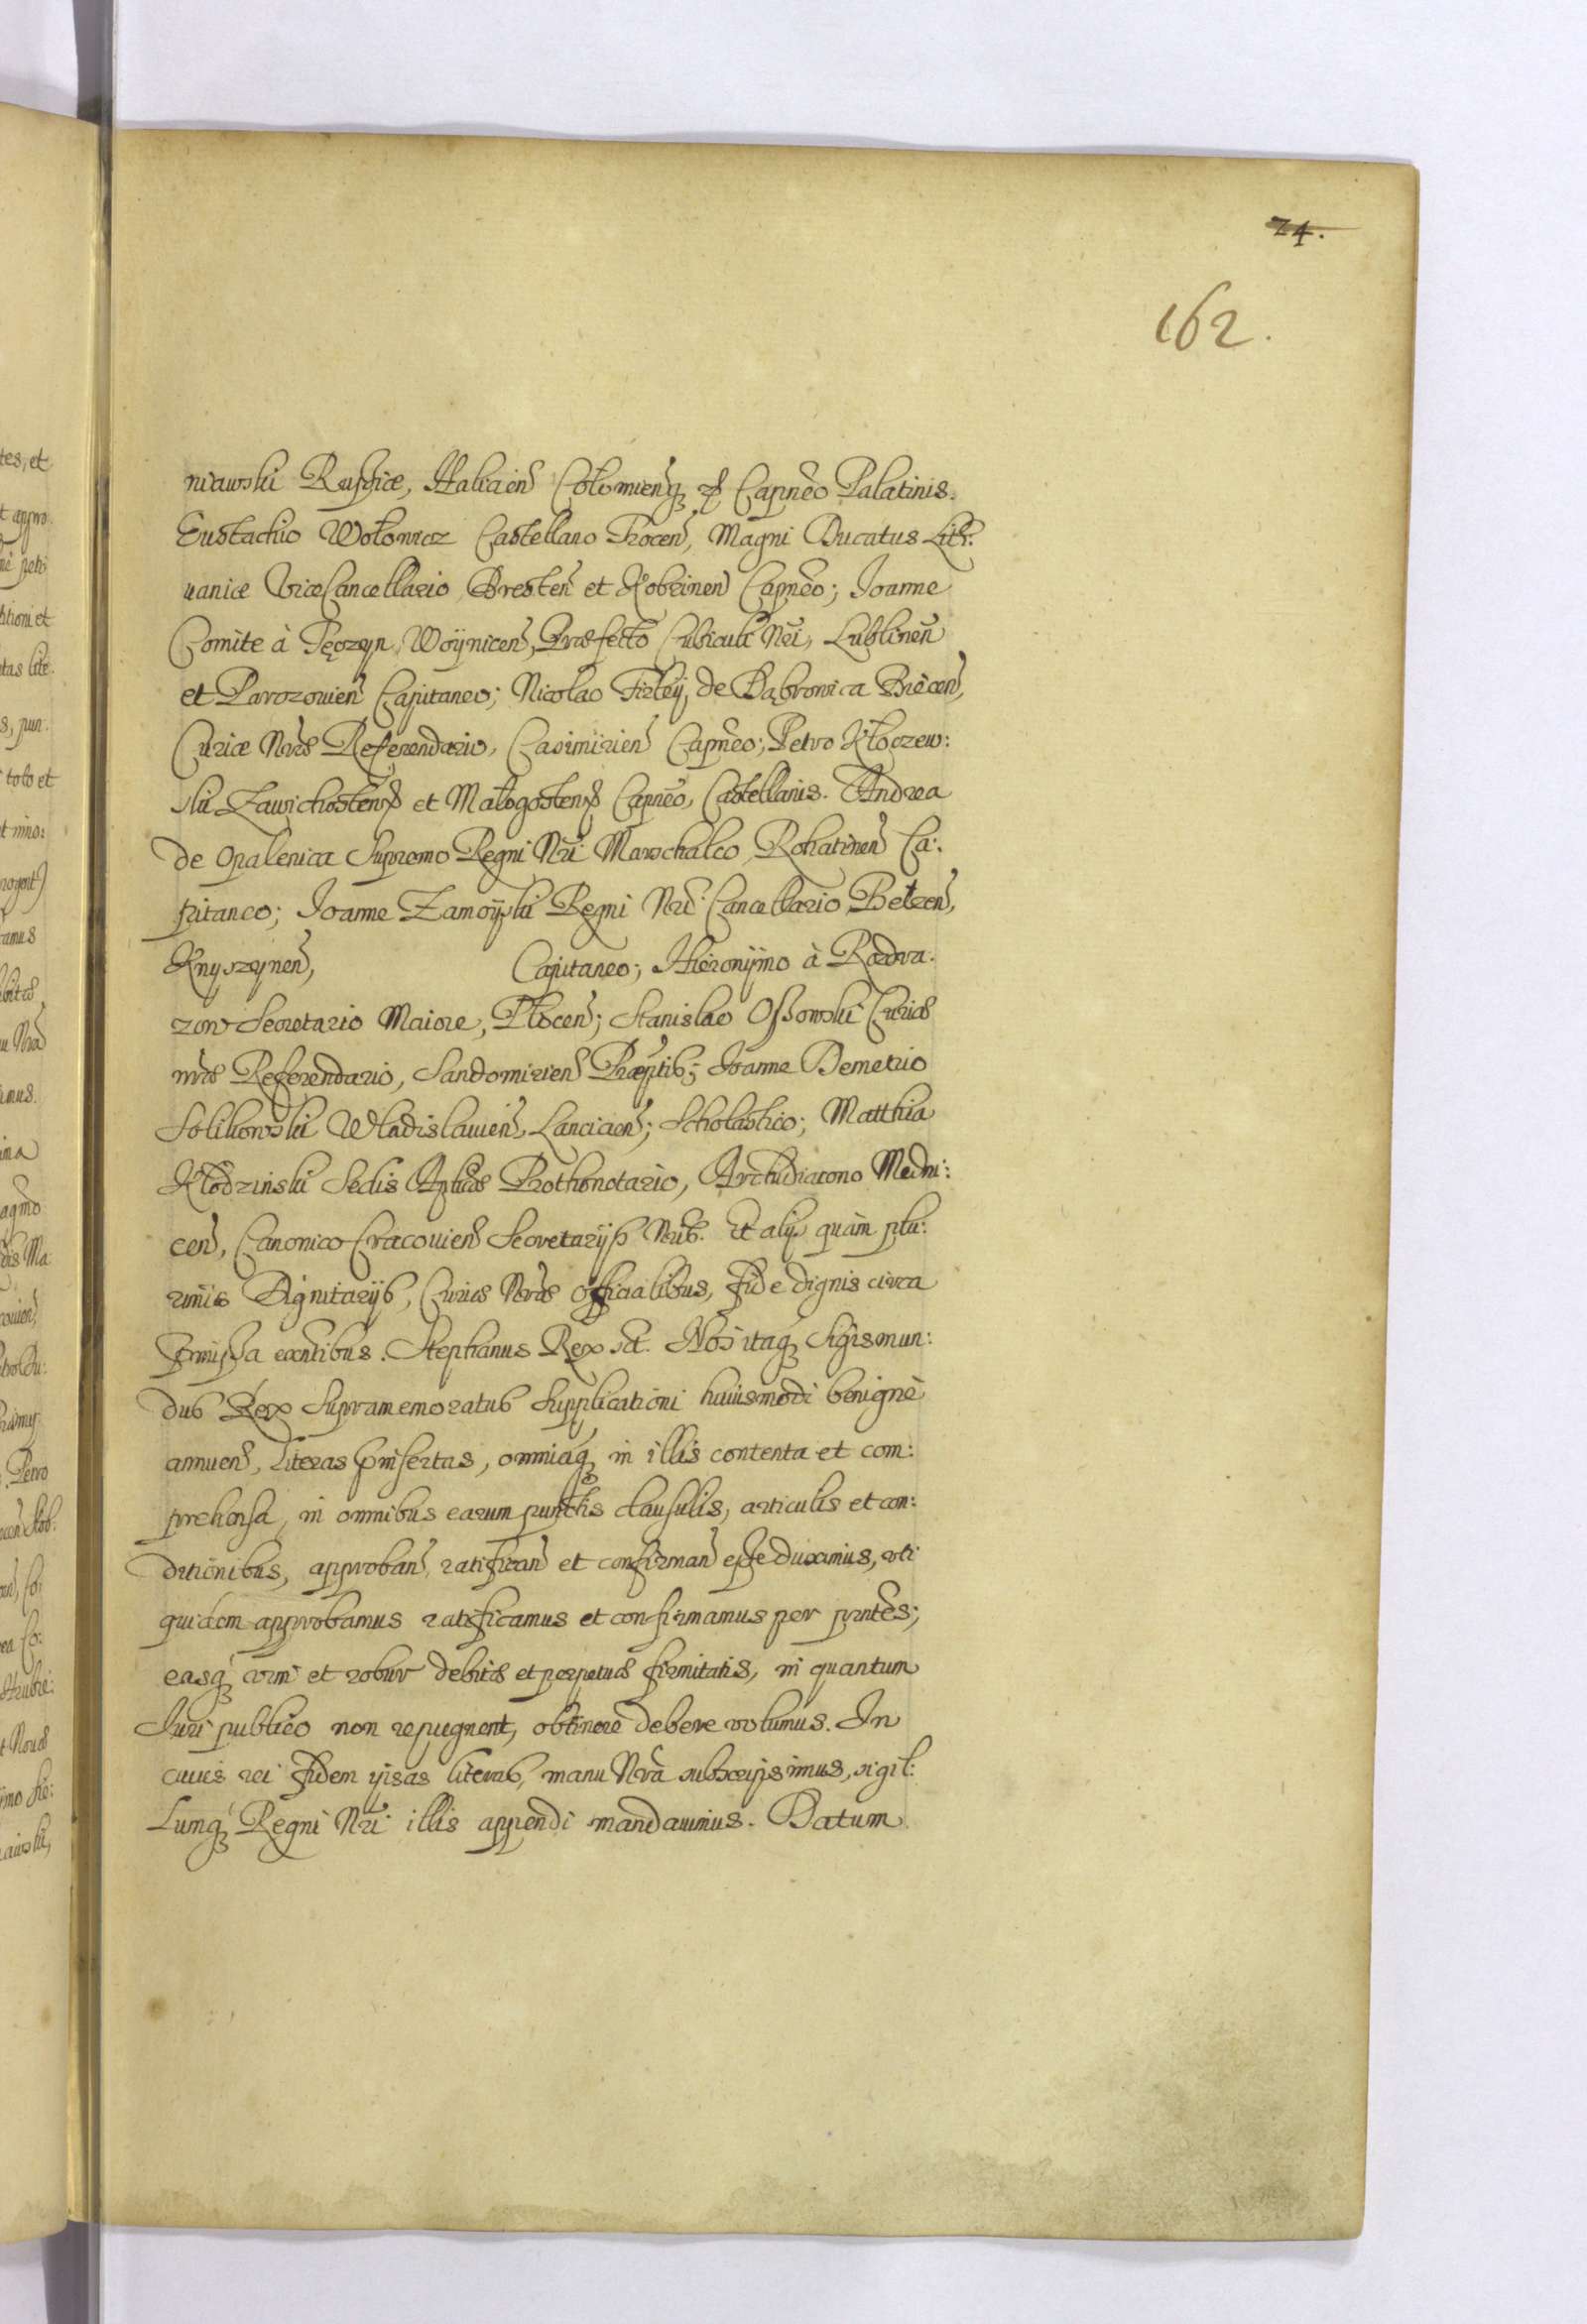 24.
162.
niawski Russiæ, Haliciens̄ Colomienq₃ &c̄ Capn̄eo Palatinis.
Eustachio Wołowicz Castellano Trocen̄, Magni Ducatus Lith:
uaniæ ViceCancellario Bresten̄ et Kobrinen̄ Capn̄eo; Joanne
Comite à Tęczyn, Woÿnicen̄, Præfecto Cubiculi Nr̄i, Lublinen̄
et Parczouien̄ Capitaneo; Nicolao Firleÿ de Dąbrowica Biecen̄,
Curiæ Nr̄æ Referendario, Casimirien̄ Capn̄eo; Petro Kłoczew:
ski Zawichosten̄ et Małogosten̄ Capn̄eo, Castellanis. Andrea
de Opalenica Supremo Regni Nr̄i Marschalco, Rohatinen̄ Ca:
pitaneo; Joanne Zamoÿski Regni Nr̄i Cancellario, Belzen̄,
Knyszynen̄, Capitaneo; Hieronÿmo à Rozdra:
zow Secretario Maiore, Plocen̄; Stanislao Ossowski Curiæ
nr̄æ Referendario, Sandomirien̄ Præptis; Joanne Demetrio
Solikowski Wladislauien̄, Lancicien̄; Scholastico; Matthia
Kłodzinski Sedis Aplicæ Prothonotario, Archidiacono Medni:
cen̄, Canonico Cracouien̄ Secretarijs Nr̄is. Et alijs quàm plu:
rimis Dignitarijs, Curiæ Nr̄æ Officialibus, fide dignis circa
præmissa exn̄tibus. Stephanus Rex sst. Nos itaq₃ Sigismun:
dus Rex supramemoratus supplicationi huiusmodi benignè
annuen̄, literas p̄insertas, omniaq₃ in illis contenta et com:
prehensa, in omnibus earum punctis clausulis, articulis et con:
ditionibus, approban̄, ratifican̄ et confirman̄ esse duximus, uti
quidem approbamus ratificamus et confirmamus per prn̄tes;
easq₃ uim et robur debitæ et perpetuæ firmitatis, in quantum
Juri publico non repugnent, obtinere debere uolumus. In
cuius rei fidem ip̄sas literas, manu Nr̄a subscripsimus, sigil:
lumq₃ Regni Nr̄i illis appendi mandauimus. Datum